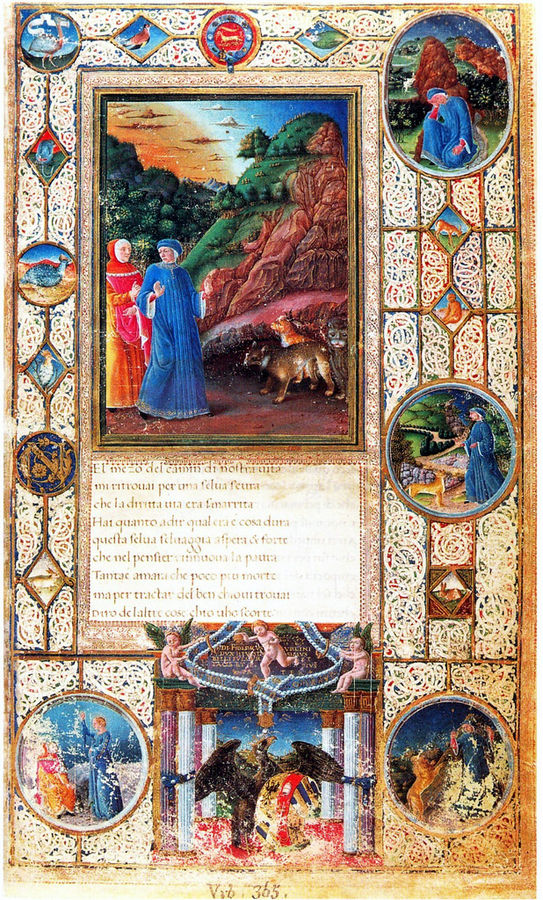 El mezo del camin di nostra uita
mi ritrouai per una selua scura
che la diritta uia era smarrita
Hai quanto adir qual era è cosa dura
questa selua seluaggia aspera & forte
che nel pensier rinnuoua la paura
Tantae amara che poco piu morte
ma per tractar del ben chio ui trouai
Diro de laltre cose chio uho scorte
Vrb. 365.